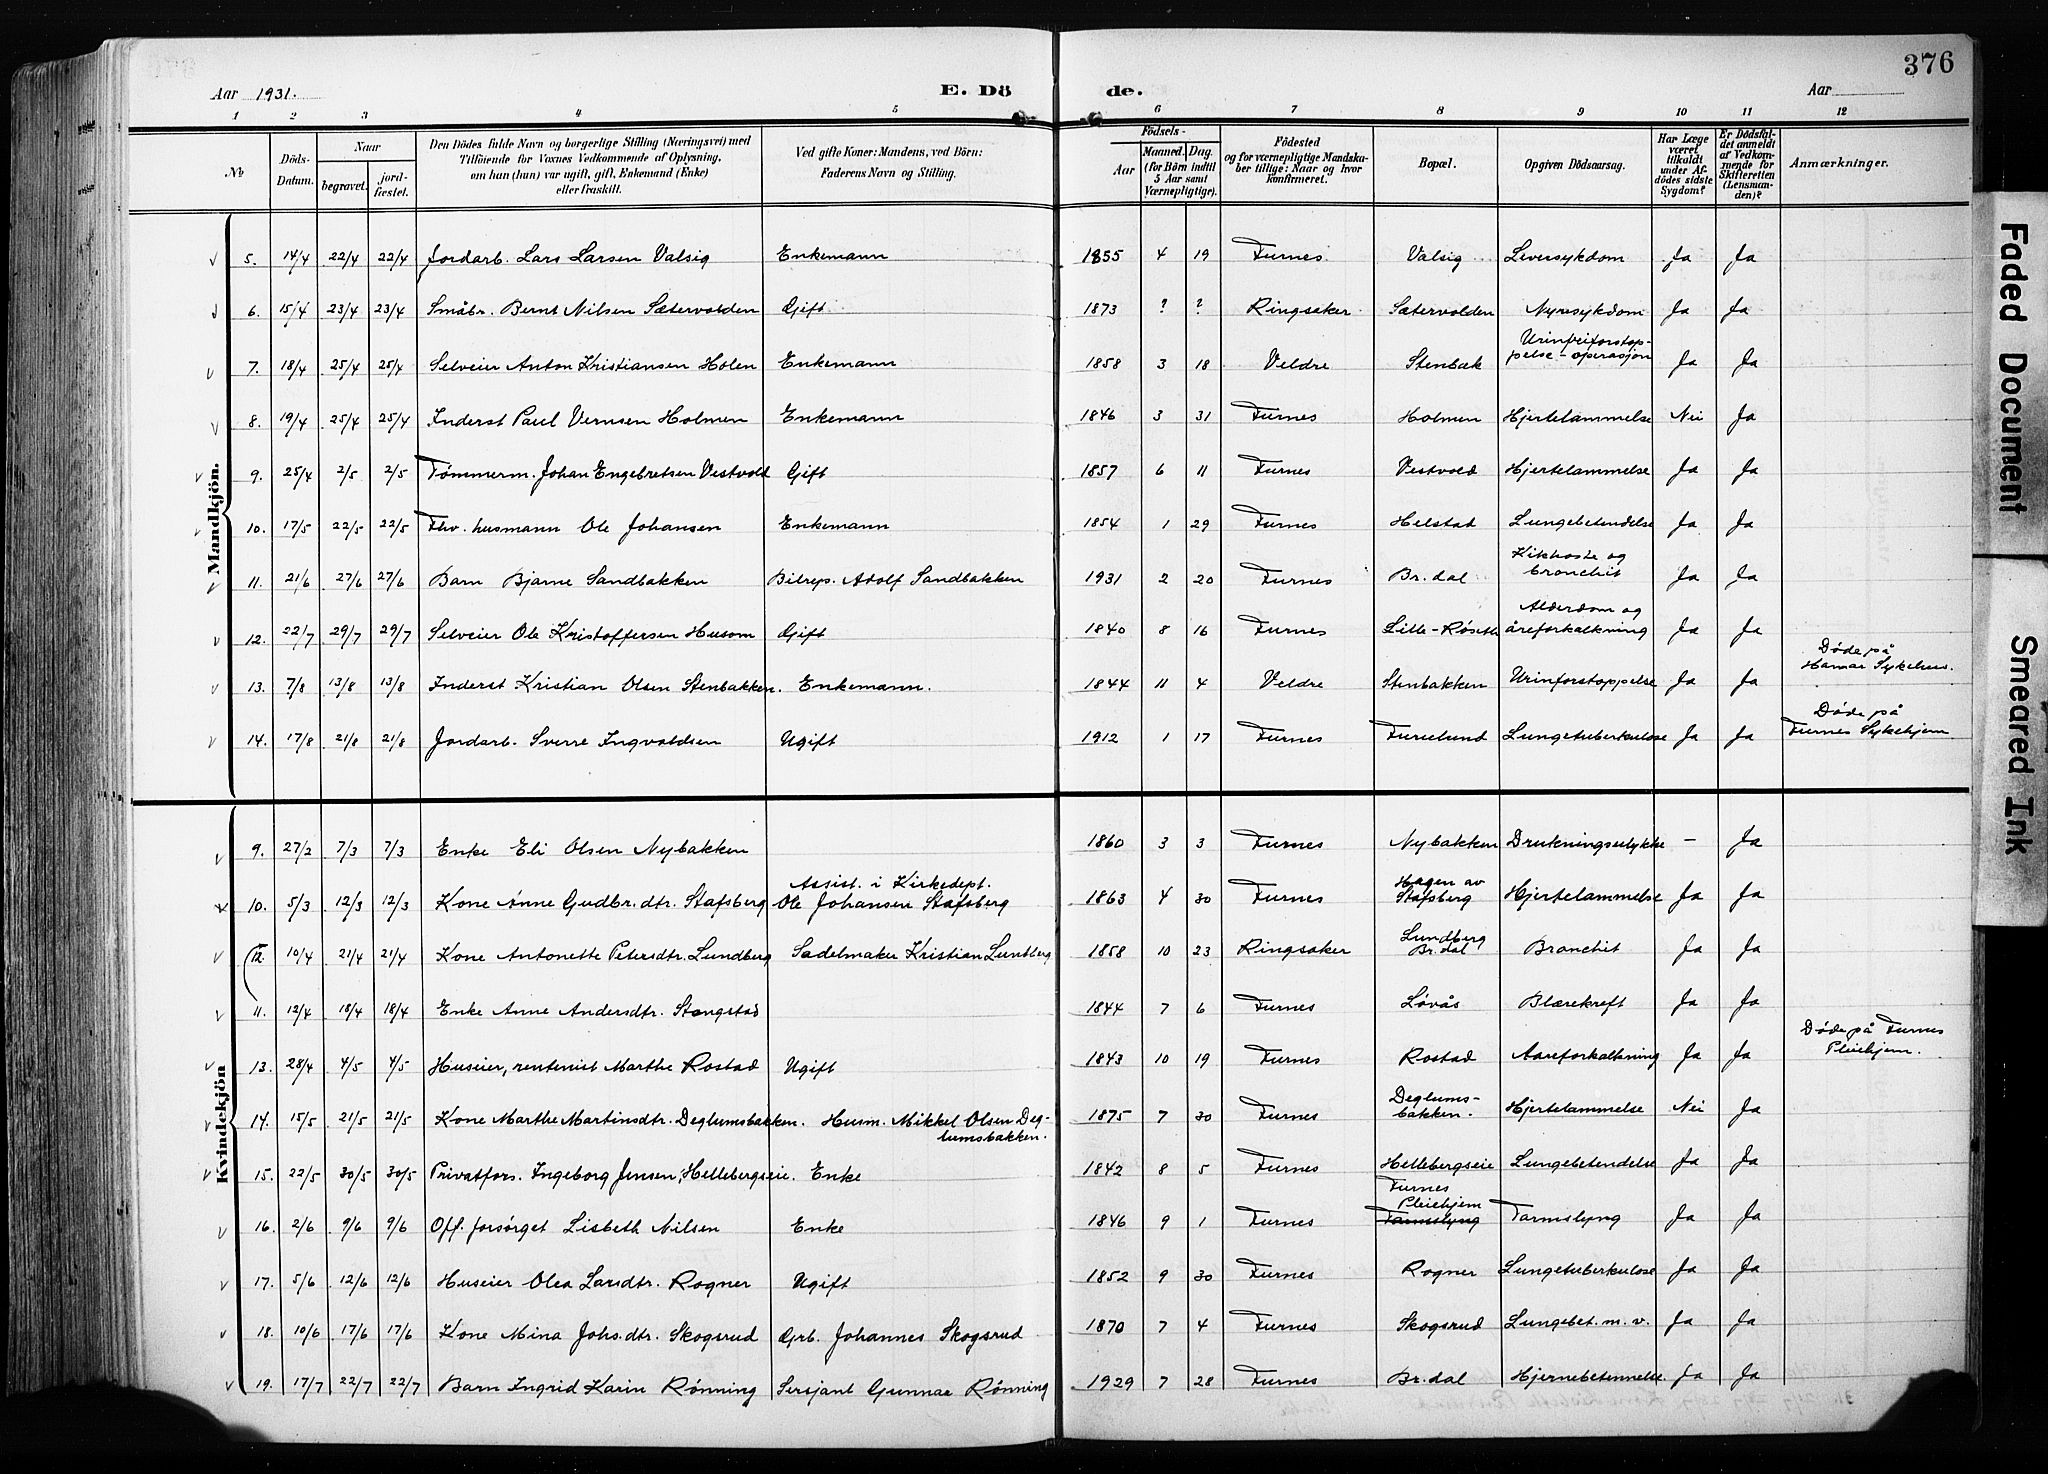 376
Aar 1931.
E. Dö
de.
Aar
1 2 3 4 5 6 7 8 9 10 11 12
No
Döds-Datum.
Naar
begravet.
jord-fæstet.
Den Dödes fulde Navn og borgerlige Stilling (Næringsvei) med
Tilföiende for Voxnes Vedkommende af Oplysning,
om han (hun) var ugift, gift, Enkemand (Enke)
eller fraskilt.
Ved gifte Koner: Mandens, ved Börn:
Faderens Navn og Stilling.
Födsels-
Aar
Maaned. Dag.
(for Börn indtil
5 Aar samt
Værnepligtige).
Födested
og for værnepligtige Mandska-
ber tillige: Naar og hvor
konfirmeret.
Bopæl.
Opgiven Dödsaarsag.
Har Læge
været
tilkaldt
under Af-
dödes sidste
Sygdom?
Er Dödsfal-
det anmeldt
af Vedkom-
mende for
Skifteretten
(Lensman-
den)?
Anmærkninger.
Mandkjön.
5. 14/4 22/4 22/4 Jordarb. Lars Larsen Valsig Enkemann 1855 4 19 Furnes Valsig Leversykdom Ja Ja
6. 15/4 23/4 23/4 Småbr. Bernt Nilsen Sætervolden Gift 1873 ? ? Ringsaker Sætervolden Nyresykdom Ja Ja
7. 18/4 25/4 25/4 Selveier Anton Kristiansen Holen Enkemann 1858 3 18 Veldre Stenbak Urinveiforstop-
pelse - operasjon Ja Ja
8. 19/4 25/4 25/4 Inderst Paul Vernsen Holmen Enkemann 1846 3 31 Furnes Holmen Hjertelammelse Nei Ja
9. 25/4 2/5 2/5 Tømmerm. Johan Engebretsen Vestvold Gift 1857 6 11 Furnes Vestvold Hjertelammelse Ja Ja
10. 17/5 22/5 22/5 Fhv. husmann Ole Johansen Enkemann 1854 1 29 Furnes Helstad Lungebetendelse Ja Ja
11. 21/6 27/6 27/6 Barn Bjarne Sandbakken Bilrep. Adolf Sandbakken 1931 2 20 Furnes Br.dal Kikhoste og
bronchit Ja Ja
12. 22/7 29/7 29/7 Selveier Ole Kristoffersen Husom Gift 1840 8 16 Furnes Lille-Røseth Alderdom og
åreforkalkning Ja Ja
13. 7/8 13/8 13/8 Inderst Kristian Olsen Stenbakken. Enkemann. 1844 11 4 Veldre Stenbakken Urinforstoppelse Ja Ja Døde på
Hamar Sykehus.
14. 17/8 21/8 21/8 Jordarb. Sverre Ingvaldsen Ugift 1912 1 17 Furnes Furulund Lungetuberkulose Ja Ja Døde på
Furnes Sykehjem
Kvindekjön
9. 27/2 7/3 7/3 Enke Eli Olsen Nybakken 1860 3 3 Furnes Nybakken Drukningsulykke - Ja
10. 5/3 12/3 12/3 Kone Anne Gudbr.dtr. Stafsberg Assist. i Kirkedept.
Ole Johansen Stafsberg 1863 4 30 Furnes Hagen av
Stafsberg Hjertelammelse Ja Ja
12. 10/4 21/4 21/4 Kone Antonette Petersdtr. Lundberg Sadelmaker Kristian Lundberg 1858 10 23 Ringsaker Lundberg
Br.dal Bronchit Ja Ja
11. 12/4 18/4 18/4 Enke Anne Andersdtr. Stangstad 1844 7 6 Furnes Løvås Blærekreft Ja Ja
13. 28/4 4/5 4/5 Huseier, rentenist Marthe Rostad Ugift 1843 10 19 Furnes Rostad Aareforkalkning Ja Ja Døde på Furnes
Pleiehjem.
14. 15/5 21/5 21/5 Kone Marthe Martinsdtr. Deglumsbakken. Husm. Mikkel Olsen Deg-
lumsbakken. 1875 7 30 Furnes Deglums-
bakken. Hjertelammelse Nei Ja
15. 22/5 30/5 30/5 Privatfors. Ingeborg Jensen, Hellebergseie. Enke 1842 8 5 Furnes Hellebergseie Lungebetendelse Ja Ja
16. 2/6 9/6 9/6 Off. forsørget Lisbeth Nilsen Enke 1846 9 1 Furnes Furnes
Pleiehjem
Tarmslyng Tarmslyng Ja Ja
17. 5/6 12/6 12/6 Huseier Olea Larsdtr. Rogner Ugift 1852 9 30 Furnes Rogner Lungetuberkulose Ja Ja
18. 10/6 17/6 17/6 Kone Mina Johs.dtr. Skogsrud Grb. Johannes Skogsrud 1870 7 4 Furnes Skogsrud Lungebet. m. v. Ja Ja
19. 17/7 22/7 22/7 Barn Ingrid Karin Rønning Sersjant Gunnar Rønning 1929 7 28 Furnes Br.dal Hjernebetennelse. Ja Ja
Faded Document
Smeared Ink